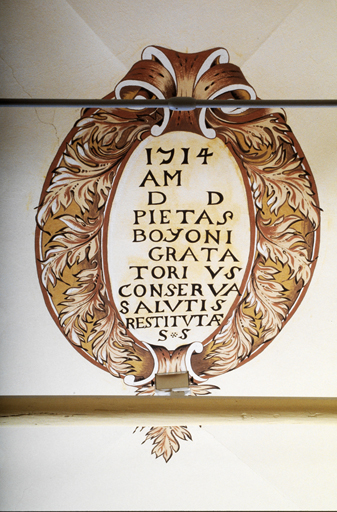 1714
AM
D D
PIETAS
BOYONI
GRATA
TORI VS
CONSERVA
SALVTIS
RESTITVTÆ
S * S